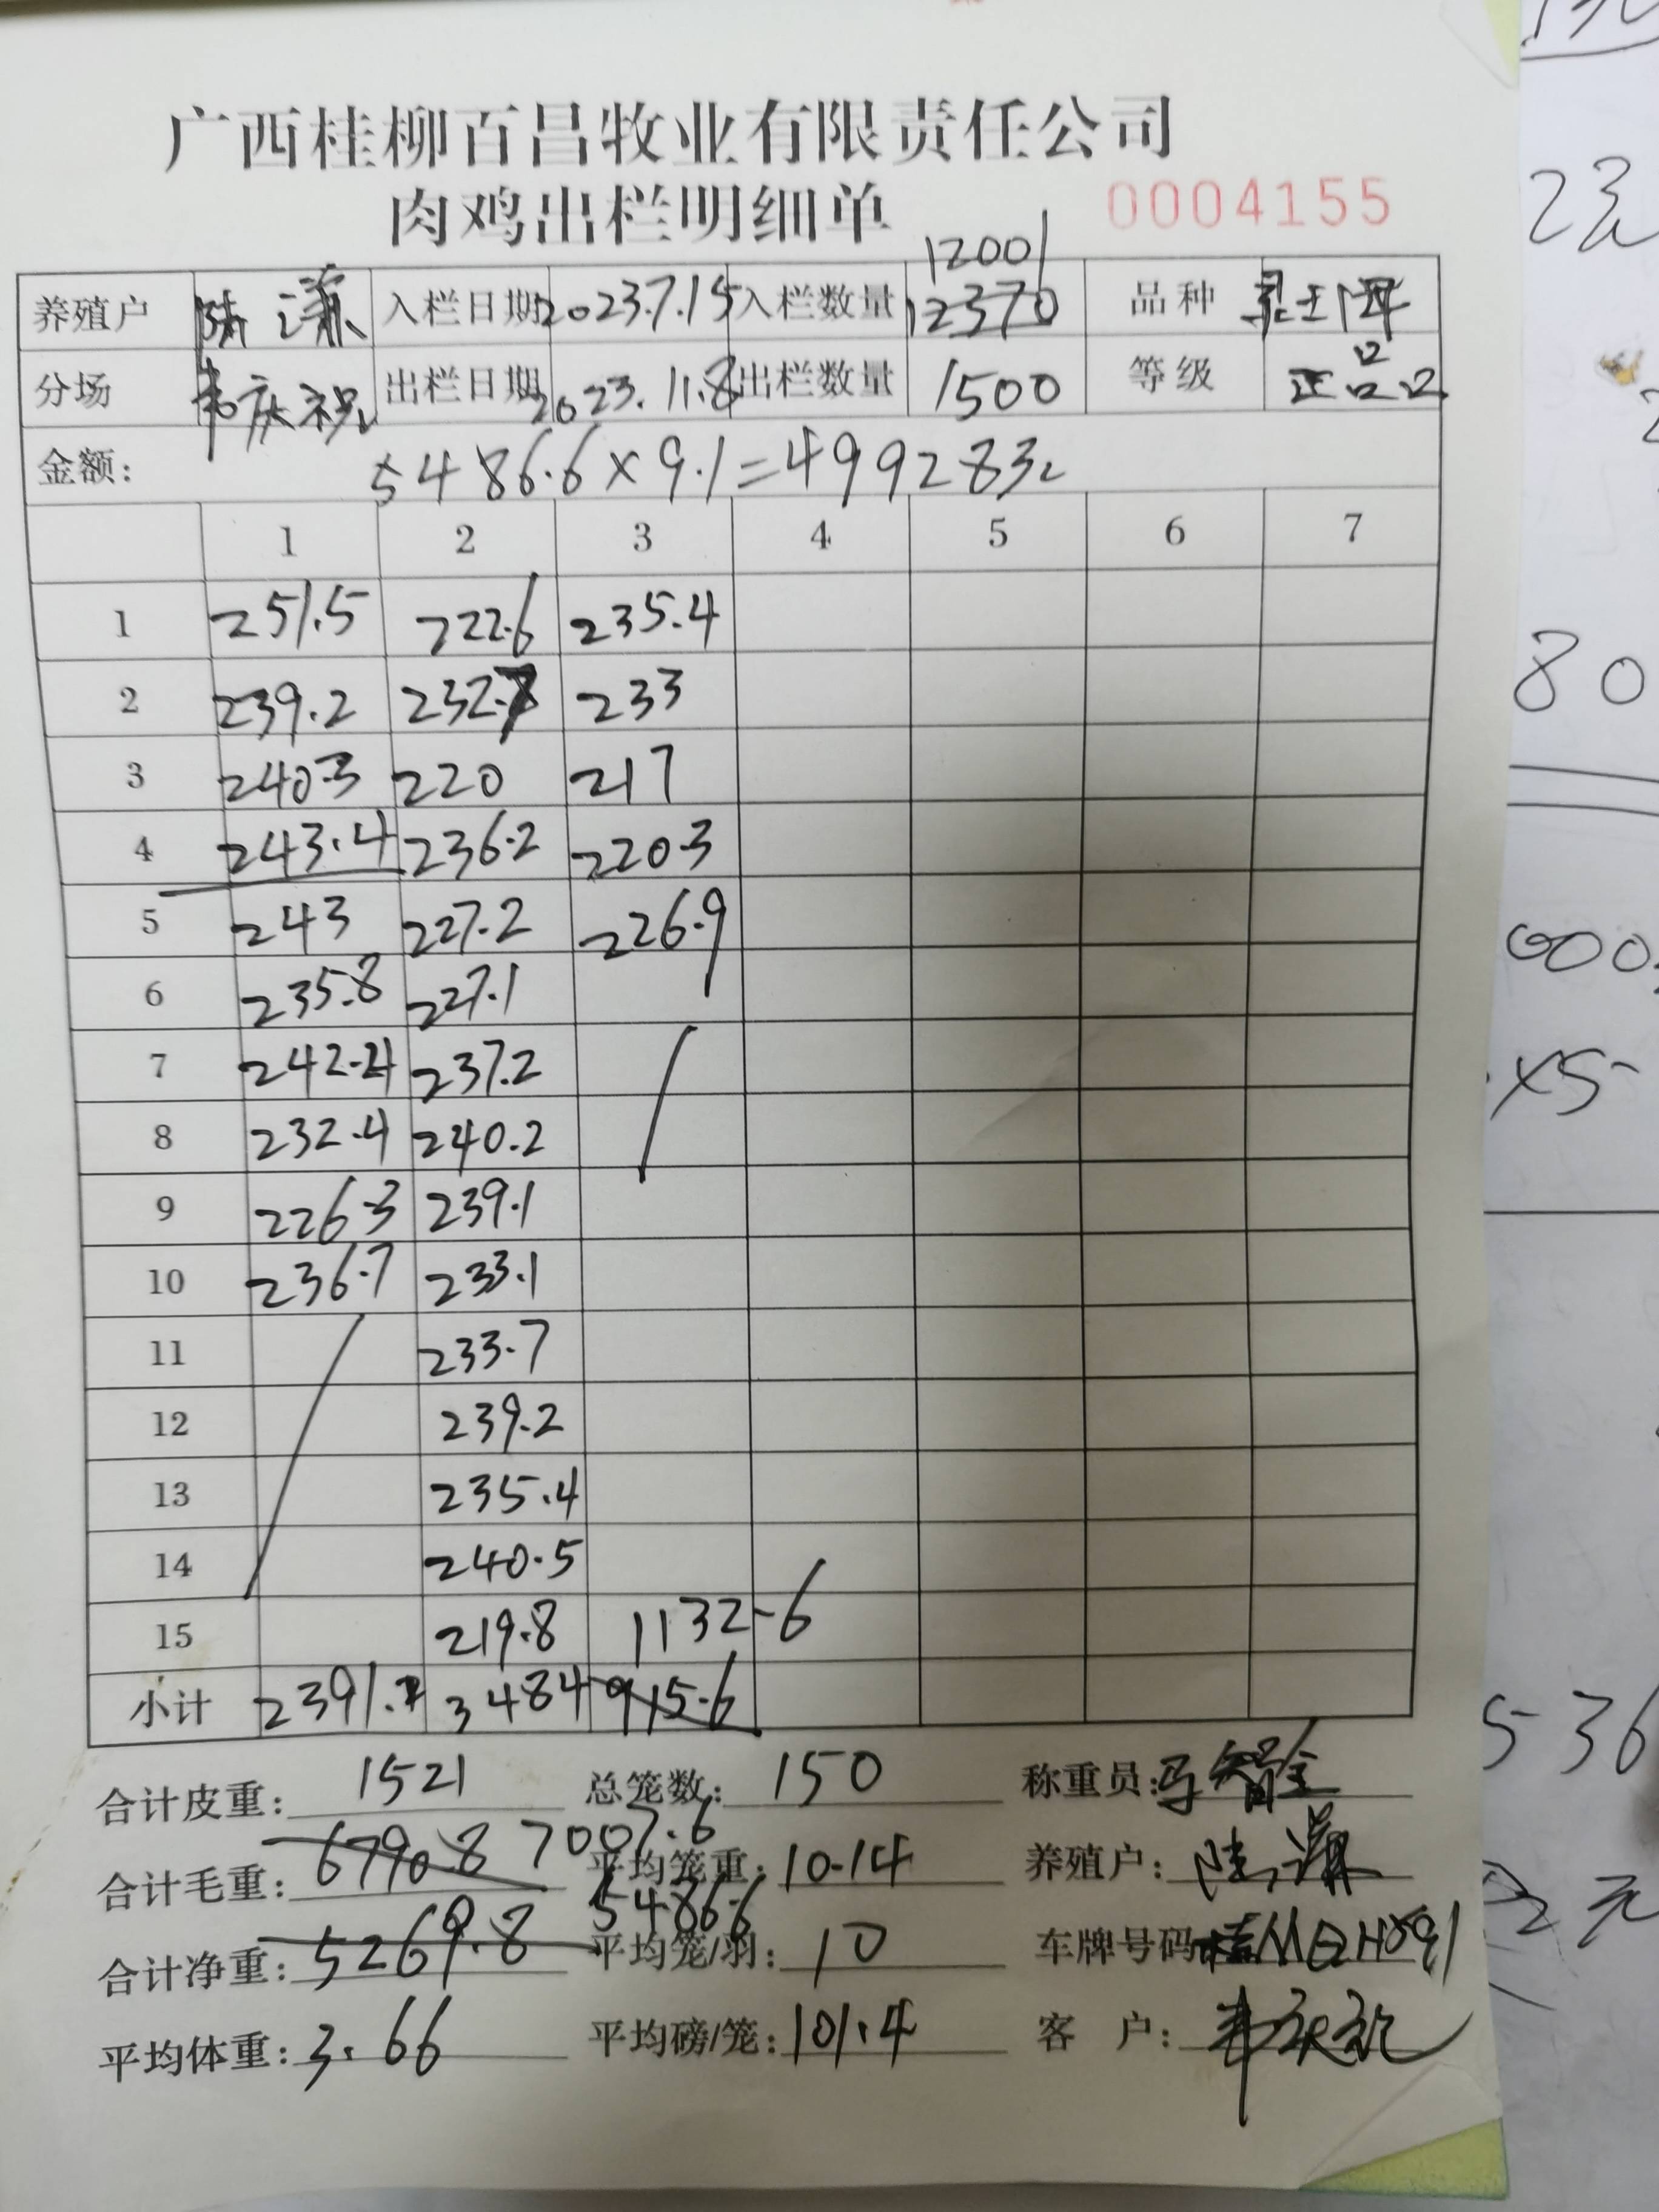 广西桂柳百昌牧业有限责任公司
肉鸡出栏明细单 0004155
12001
养殖户 入栏日期 2023.7.15 入栏数量 12370 品种
分场 韦庆祝 出栏日期 2023.11.8 出栏数量 1500 等级 正品
金额: 5486.6×9.1=49928元
1 2 3 4 5 6 7
1 251.5 222.6 235.4
2 239.2 232.7 233
3 240.3 220 217
4 243.4 236.2 220.3
5 243 227.2 226.9
6 235.8 227.1
7 242.4 237.2
8 232.4 240.2
9 226.3 239.1
10 236.7 233.1
11 233.7
12 239.2
13 235.4
14 240.5
15 219.8 1132.6
小计 2391 3484 915.6
合计皮重: 1521 总笼数: 150 称重员:
合计毛重: 6790.8 7007.6 平均笼重: 10.14 养殖户:
合计净重: 5269.8 5486.6 平均笼/羽: 10 车牌号码
平均体重: 3.66 平均磅/笼: 101.4 客 户: 韦庆祝
80
000
×5
536
2元